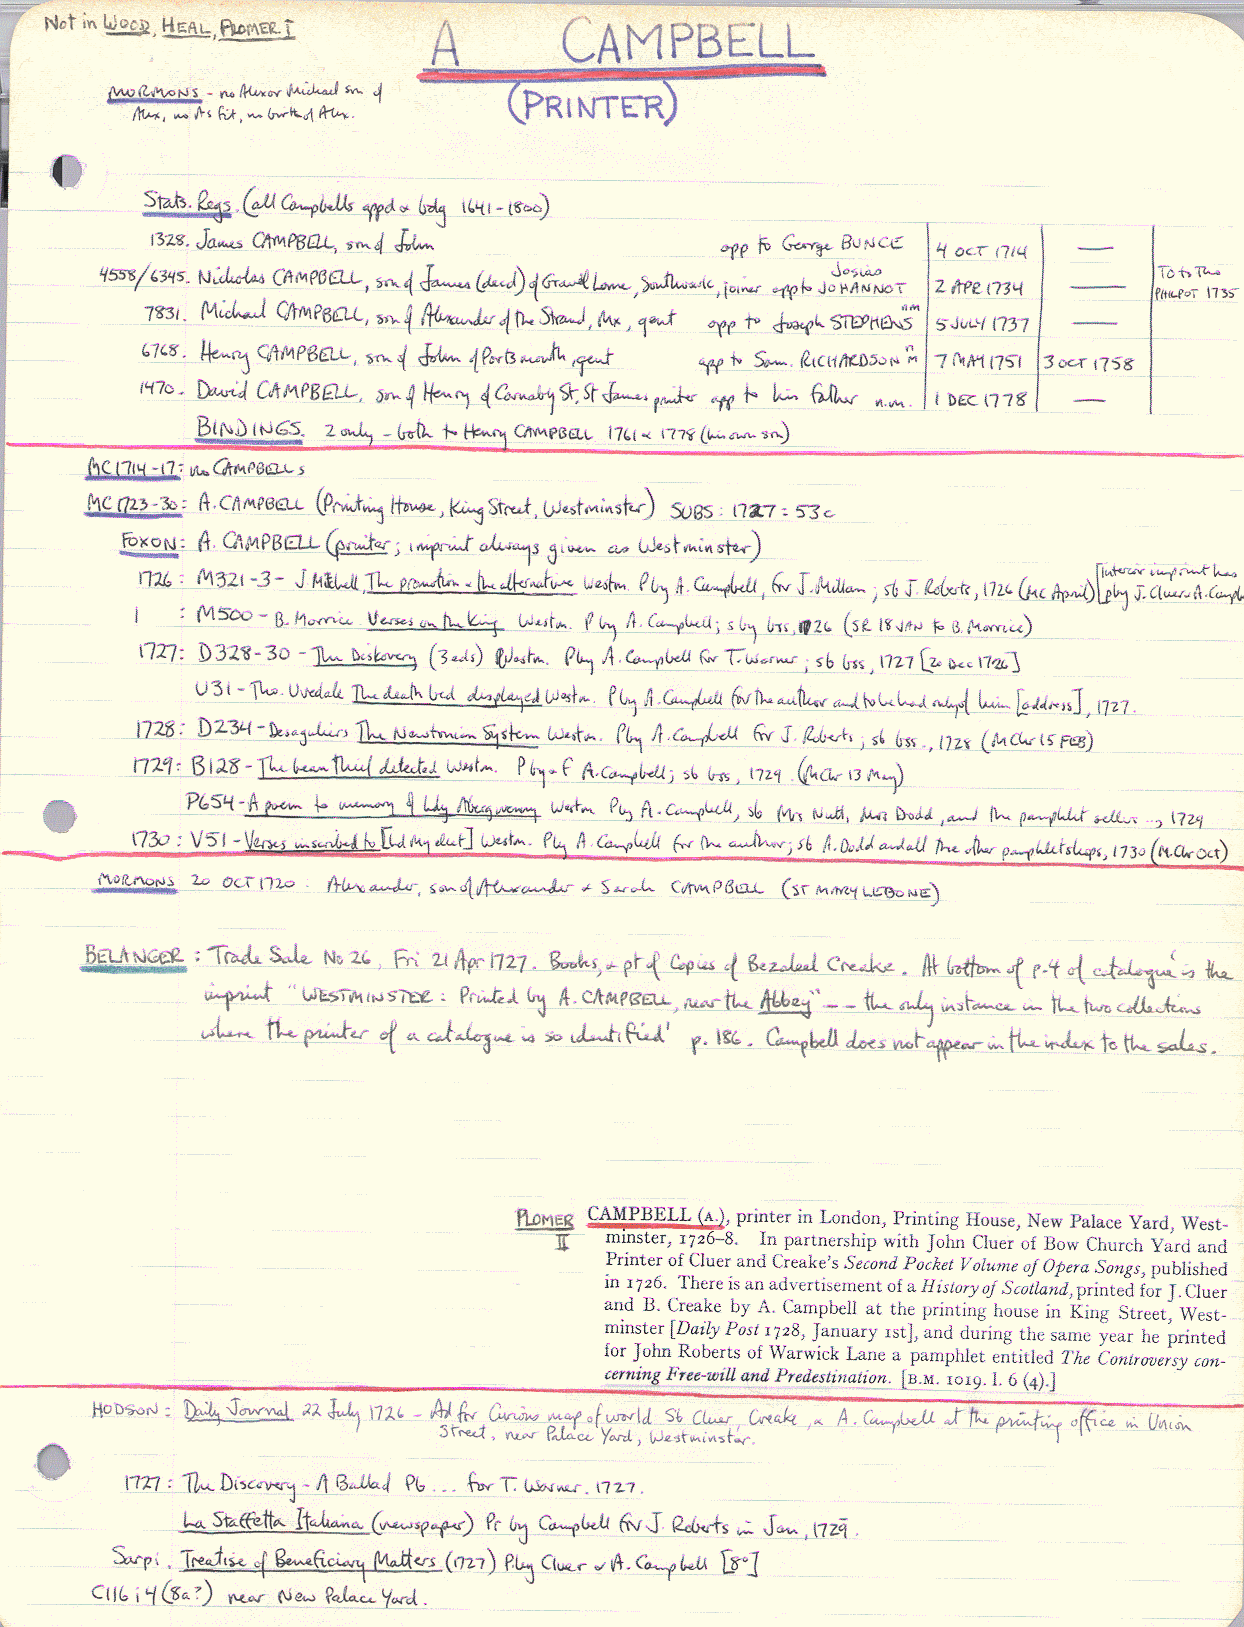 Not in WOOD, HEAL, PLOMER I
A CAMPBELL
(PRINTER)
MORMONS - no Alex or Michael son of
Alex, no As fit, no birth of Alex.
Stats. Regs. (all Campbells appd & bdg 1641-1800)
1328. James CAMPBELL, son of John app to George BUNCE 4 OCT 1714 —
4558/6345. Nicholas CAMPBELL, son of James (decd) of Gravel Lane, Southwark, joiner app to Josias JOHANNOT 2 APR 1734 — TO to Tho PHILPOT 1735
7831. Michael CAMPBELL, son of Alexander of the Strand, Mx, gent app to Joseph STEPHENS nm 5 JULY 1737 —
6768. Henry CAMPBELL, son of John of Portsmouth, gent app to Sam. RICHARDSON nm 7 MAY 1751 3 OCT 1758
1470. David CAMPBELL, son of Henry of Carnaby St, St James printer app to his father n.m. 1 DEC 1778 —
BINDINGS. 2 only - both to Henry CAMPBELL 1761 & 1778 (his own son)
MC 1714-17: no CAMPBELLs
MC 1723-30: A. CAMPBELL (Printing House, King Street, Westminster) SUBS: 1727 = 53c
FOXON: A. CAMPBELL (printer; imprint always given as Westminster)
1726: M321-3 - J Mitchell The promotion & the alternative Westm. P by A. Campbell, for J. Millan; sb J. Roberts, 1726 (MC April) [interior imprint has p by J. Cluer & A. Campb
: M500 - B. Morrice Verses on the King Westm. P by A. Campbell; s by bss, 1726 (SR 18 JAN to B. Morrice)
1727: D328-30 - The Diskovery (3 eds) Westm. P by A. Campbell for T. Warner; sb bss, 1727 [20 Dec 1726]
U31 - Tho. Uvedale The death bed displayed Westm. P by A. Campbell for the author and to be had only of him [address], 1727.
1728: D234 - Desaguliers The Newtonian System Westm. P by A. Campbell for J. Roberts; sb bss., 1728 (MChr 15 FEB)
1729: B128 - The bean thief detected Westm. P by & f A. Campbell; sb bss, 1729. (MChr 13 May)
P654 - A poem to memory of Lady Abergavenny Westm P by A. Campbell, sb Mrs Nutt, Mrs Dodd, and the pamphlet sellers .., 1729
1730: V51 - Verses inscribed to [Ld Mydelect] Westm. P by A. Campbell for the author; sb A. Dodd and all the other pamphletshops, 1730 (M.Chr Oct)
MORMONS 20 OCT 1720: Alexander, son of Alexander & Sarah CAMPBELL (ST MARY LEBONE)
BELANGER: Trade Sale No 26, Fri 21 Apr 1727. Books, & pt of Copies of Bezaleel Creake. At bottom of p. 4 of catalogue 'is the
imprint "WESTMINSTER: Printed by A. CAMPBELL, near the Abbey" -- the only instance in the two collections
where the printer of a catalogue is so identified' p. 186. Campbell does not appear in the index to the sales.
PLOMER II
CAMPBELL (A.), printer in London, Printing House, New Palace Yard, West-
minster, 1726-8. In partnership with John Cluer of Bow Church Yard and
Printer of Cluer and Creake's Second Pocket Volume of Opera Songs, published
in 1726. There is an advertisement of a History of Scotland, printed for J. Cluer
and B. Creake by A. Campbell at the printing house in King Street, West-
minster [Daily Post 1728, January 1st], and during the same year he printed
for John Roberts of Warwick Lane a pamphlet entitled The Controversy con-
cerning Free-will and Predestination. [B.M. 1019. l. 6 (4).]
HODSON: Daily Journal 22 July 1726 - Ad for Curious map of world Sb Cluer, Creake, & A. Campbell at the printing office in Union
Street, near Palace Yard, Westminster.
1727: The Discovery - A Ballad Pb ... for T. Warner. 1727.
La Staffetta Italiana (newspaper) Pr by Campbell for J. Roberts in Jan, 1729.
Sarpi. Treatise of Beneficiary Matters (1727) P. by Cluer & A. Campbell [8°]
C116 i 4 (8a?) near New Palace Yard.